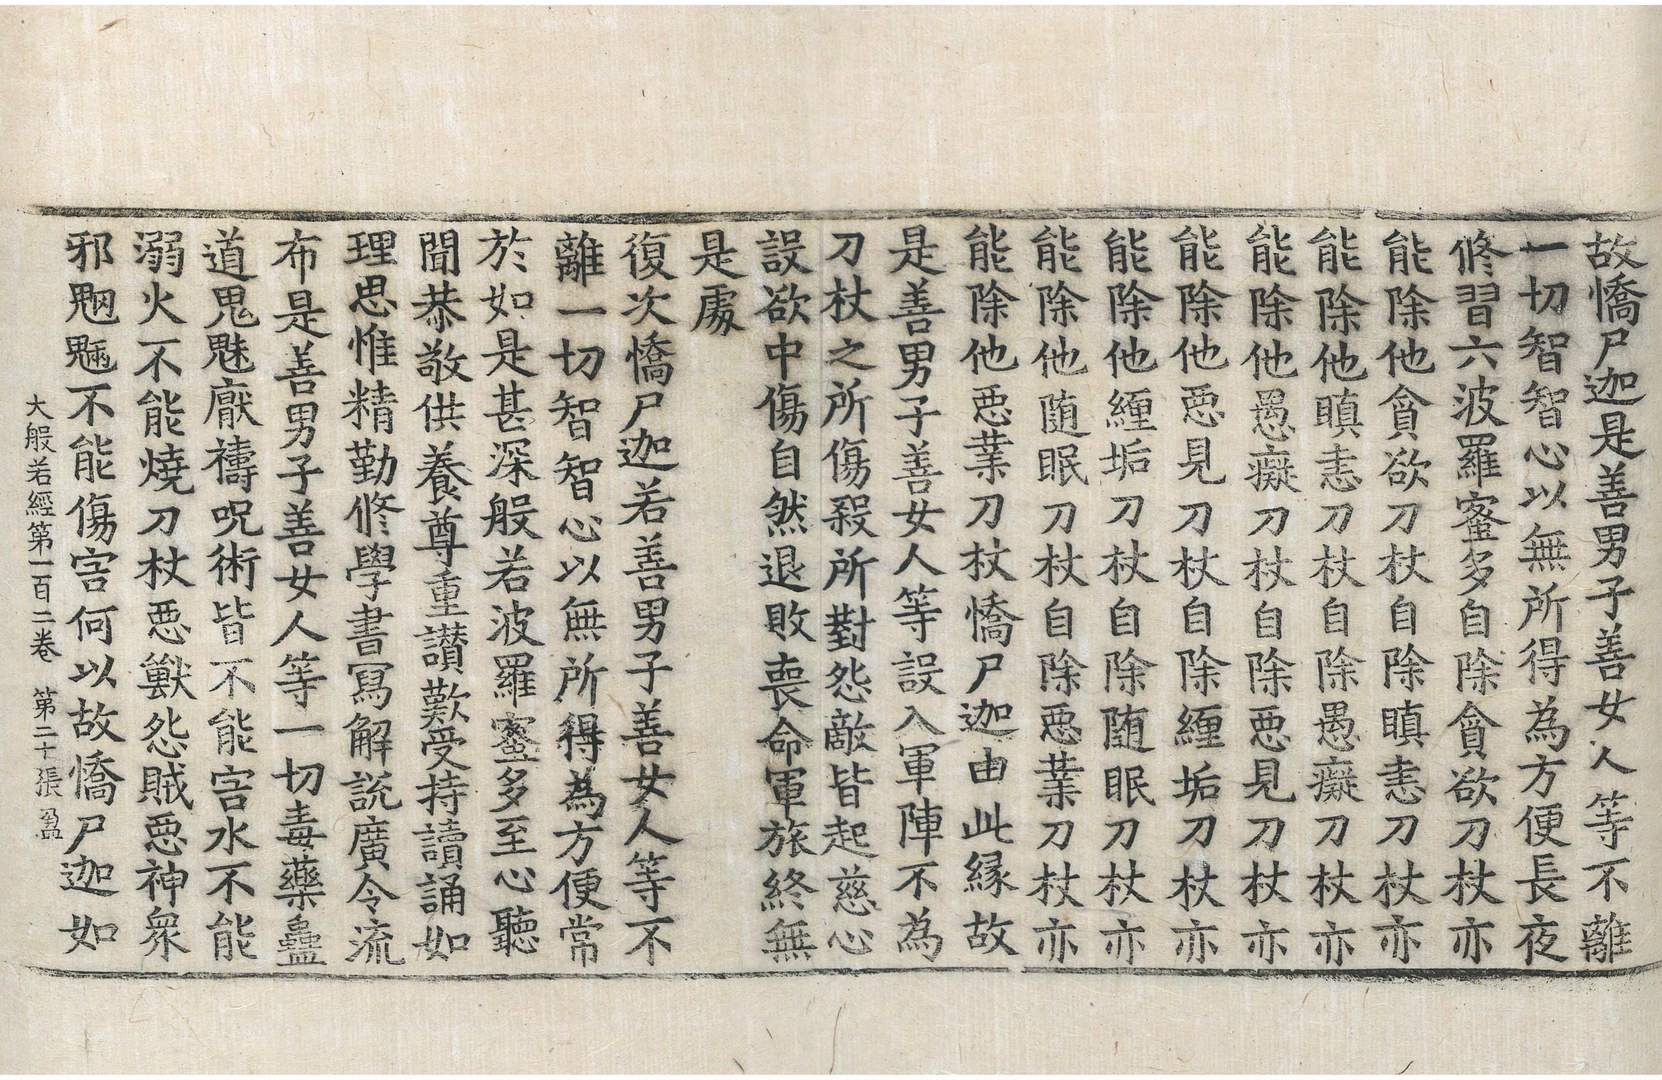 故憍尸迦是善男子善女人等不離
一切智智心以無所得為方便長夜
修習六波羅蜜多自除貪欲刀杖亦
能除他貪欲刀杖自除瞋恚刀杖亦
能除他瞋恚刀杖自除愚癡刀杖亦
能除他愚癡刀杖自除惡見刀杖亦
能除他惡見刀杖自除纏垢刀杖亦
能除他纏垢刀杖自除随眠刀杖亦
能除他随眠刀杖自除惡業刀杖亦
能除他惡業刀杖憍尸迦由此縁故
是善男子善女人等設入軍陣不為
刀杖之所傷殺所對怨敵皆起慈心
設欲中傷自然退敗喪命軍旅終無
是處
復次憍尸迦若善男子善女人等不
離一切智智心以無所得為方便常
於如是甚深般若波羅蜜多至心聽
聞恭敬供養尊重讃歎受持讀誦如
理思惟精勤修學書寫解説廣令流
布是善男子善女人等一切毒藥蠱
道鬼魅厭禱呪術皆不能害水不能
溺火不能燒刀杖惡獸怨賊惡神衆
邪魍魎不能傷害何以故憍尸迦如
大般若經第一百二卷 第二十張 盈